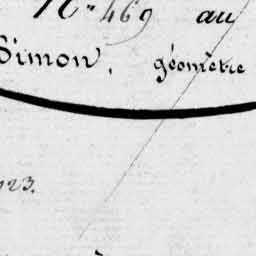 N° 469 au
Simon, géomètre
923.